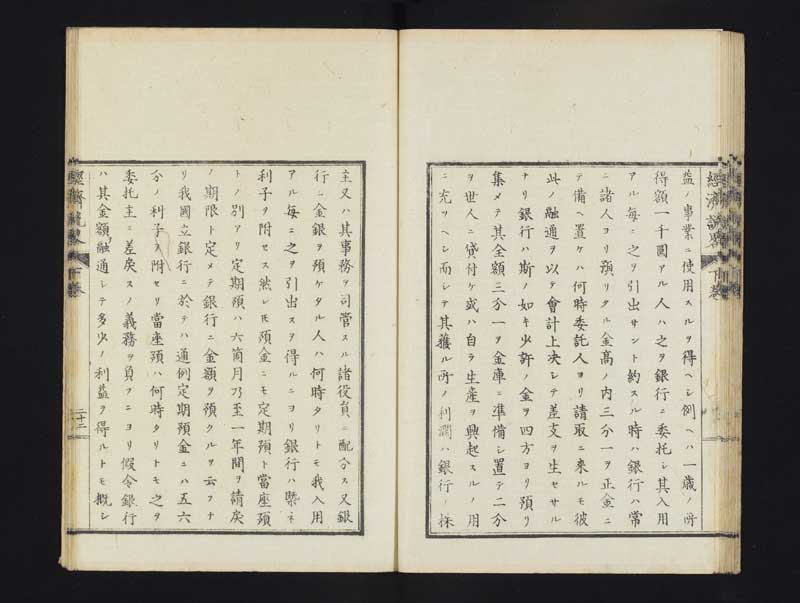 益ノ事業ニ使用スルヲ得ヘシ例ヘハ一歳ノ所
得額一千圓アル人ハ之ヲ銀行ニ委托シ其入用
アル毎ニ之ヲ引出サント約スル時ハ銀行ハ常
ニ諸人ヨリ預リタル金高ノ内三分一ヲ正金ニ
テ備ヘ置ケハ何時委託人ヨリ請取ニ来ルモ彼
此ノ融通ヲ以テ會計上决シテ差支ヲ生セサル
ナリ銀行ハ斯ノ如キ少許ノ金ヲ四方ヨリ預リ
集メテ其全額三分一ヲ金庫ニ準備シ置テ二分
ヲ世人ニ貸付ケ或ハ自ラ生産ヲ興起スルノ用
ニ充ツヘシ而シテ其獲ル所ノ利潤ハ銀行ノ株
經濟說畧 下巻
主又ハ其事務ヲ司管スル諸役員ニ配分ス又銀
行ニ金銀ヲ預ケタル人ハ何時タリトモ我入用
アル毎ニ之ヲ引出スヲ得ルニヨリ銀行ハ槩子
利子ヲ附セス然レ𪜈預金ニモ定期預ト當座預
トノ別アリ定期預ハ六箇月乃至一年間ヲ請戻
ノ期限ト定メテ銀行ニ金額ヲ預クルヲ云フナ
リ我國立銀行ニ於テハ通例定期預金ニハ五六
分ノ利子ヲ附セリ當座預ハ何時タリトモ之ヲ
委托主ニ差戻スノ義務ヲ負フニヨリ假令銀行
ハ其金額融通シテ多少ノ利益ヲ得ルトモ概シ
經濟說畧 下巻
二十二